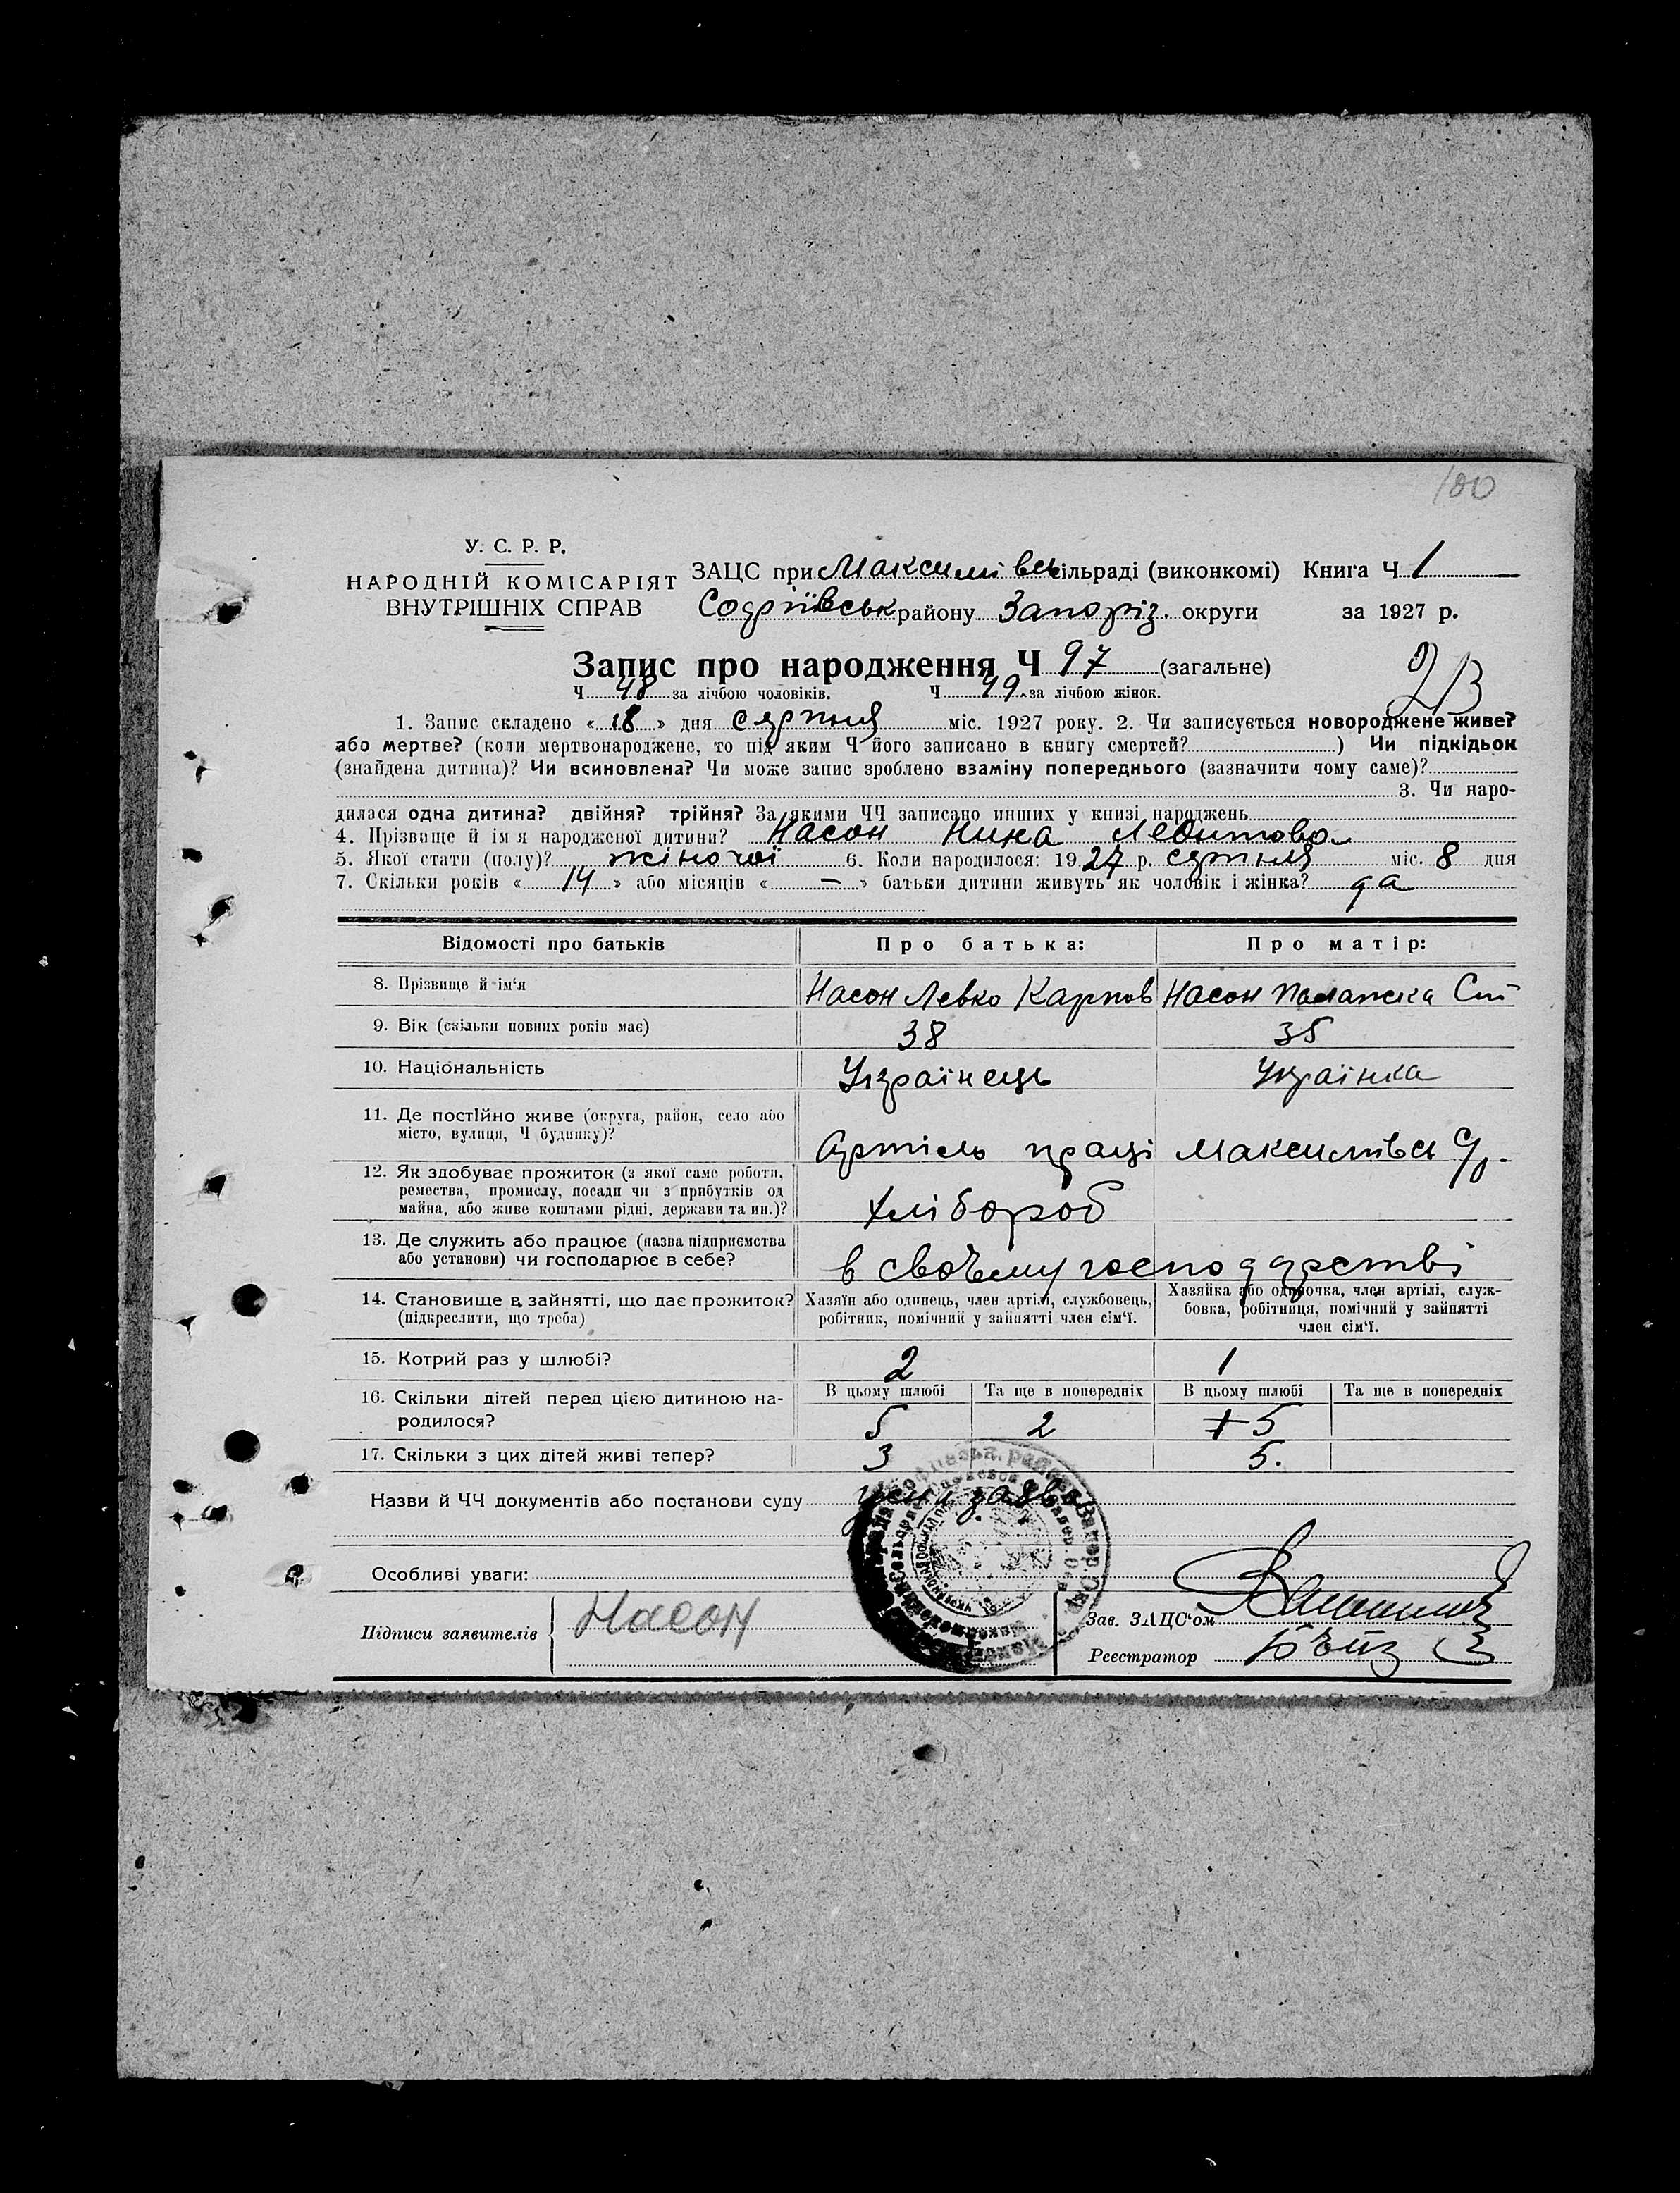 100
У. С. Р. Р.
НАРОДНІЙ КОМІСАРІЯТ
ВНУТРІШНІХ СПРАВ
ЗАЦС при Максимівсь сільраді (виконкомі) Книга Ч 1
району Запоріз. округи за 1927 р.
Запис про народження Ч 97 (загальне)
Ч 48 за лічбою чоловіків. Ч 49 за лічбою жінок.
1. Запис складено « 18 » дня серпня міс. 1927 року. 2. Чи записується новороджене живе?
або мертве? (коли мертвонароджене, то під яким Ч його записано в книгу смертей? ) Чи підкідьок
(знайдена дитина)? Чи всиновлена? Чи може запис зроблено взаміну попереднього (зазначити чому саме)?
3. Чи наро-
дилася одна дитина? двійня? трійня? За якими ЧЧ записано инших у книзі народжень
4. Прізвище й ім я народженої дитини? Насон Нина
5. Якої стати (полу)? жіночої 6. Коли народилося: 1927 р. серпня міс. 8 дня
7. Скільки років « 14 » або місяців « — » батьки дитини живуть як чоловік і жінка? да
Відомості про батьків Про батька: Про матір:
8. Прізвище й ім'я Насон Левко Карпов Насон Палажка
9. Вік (скільки повних років має) 38 35
10. Національність Українець Українка
11. Де постійно живе (округа, район, село або
місто, вулиця, Ч будинку)? Артіль праці Максимівсь
12. Як здобуває прожиток (з якої саме роботи,
ремества, промислу, посади чи з прибутків од
майна, або живе коштами рідні, держави та ин.)? хлібороб
13. Де служить або працює (назва підприємства
або установи) чи господарює в себе? в своъму господарстві
14. Становище в зайнятті, що дає прожиток? Хазяїн або одинець, член артілі, службовець, Хазяйка або одиночка, член артілі, служ-
(підкреслити, що треба) робітник, помічний у зайнятті член сім'ї. бовка, робітниця, помічний у зайнятті
член сім'ї.
15. Котрий раз у шлюбі? 2 1
16. Скільки дітей перед цією дитиною на- В цьому шлюбі Та ще в попередніх В цьому шлюбі Та ще в попередніх
родилося? 5 2 5
17. Скільки з цих дітей живі тепер? 3 5.
Назви й ЧЧ документів або постанови суду заява
Особливі уваги:
Підписи заявителів Насон Зав. ЗАЦС'ом
Реєстратор